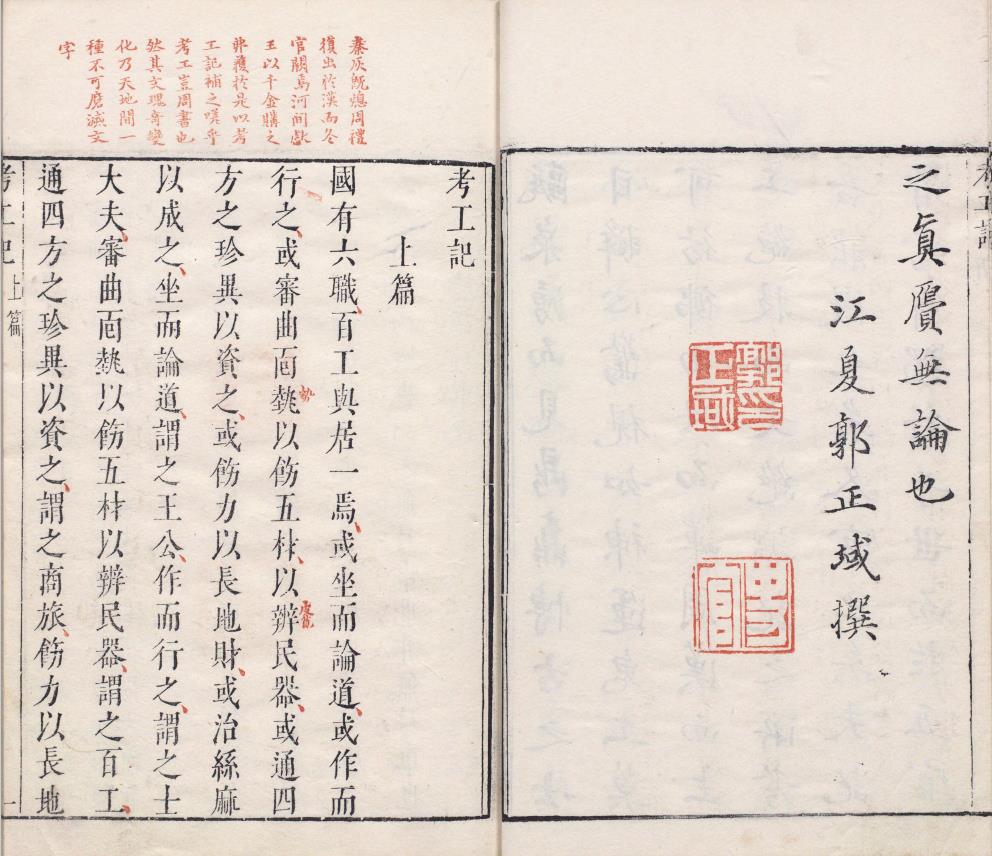 之真贗無論也
江夏郭正域撰
考工記
上篇
國有六職百工與居一焉或坐而論道或作而
行之或審曲面埶以飭五材以辨民器或通四
方之珍異以資之或飭力以長地財或治絲麻
以成之坐而論道謂之王公作而行之謂之士
大夫審曲面埶以飭五材以辨民器謂之百工
通四方之珍異以資之謂之商旅飭力以長地
秦灰旣熄周禮
復出於漢而冬
官闕焉河間獻
王以千金購之
弗獲於是以考
工記補之嗟乎
考工豈周書也
然其文瑰奇變
化乃天地間一
種不可磨滅文
字
勢
郭印正域
考工記 上篇 一